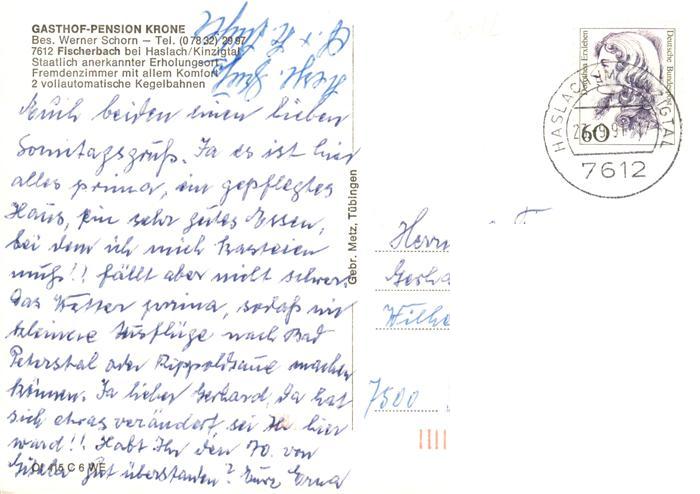 GASTHOF-PENSION KRONE
Bes. Werner Schorn – Tel. (0 78 32) 29 97
7612 Fischerbach bei Haslach/Kinzigtal
Staatlich anerkannter Erholungsort
Fremdenzimmer mit allem Komfort
2 vollautomatische Kegelbahnen
Euch beiden einen lieben
Sonntagsgruß. Ja es ist hier
alles prima, ein gepflegtes
Haus, ein sehr gutes Essen,
bei dem ich mich kasteien
muß!! fällt aber nicht schwer.
Das Wetter prima, sodaß wir
kleinere Ausflüge nach Bad
Peterstal oder Rippoldsau machen
können. Ja lieber Gerhard, da hat
sich etwas verändert, sei Ihr hier
ward!! Habt Ihr den 70. von
Gisela gut überstanden? Eure Erna
Herzl.
Gebr. Metz, Tübingen
Herrn
Gerha
Wilhe
7500
Dorothea Erxleben
Deutsche Bundespost
60
HASLACH IM KINZIGTAL
7612